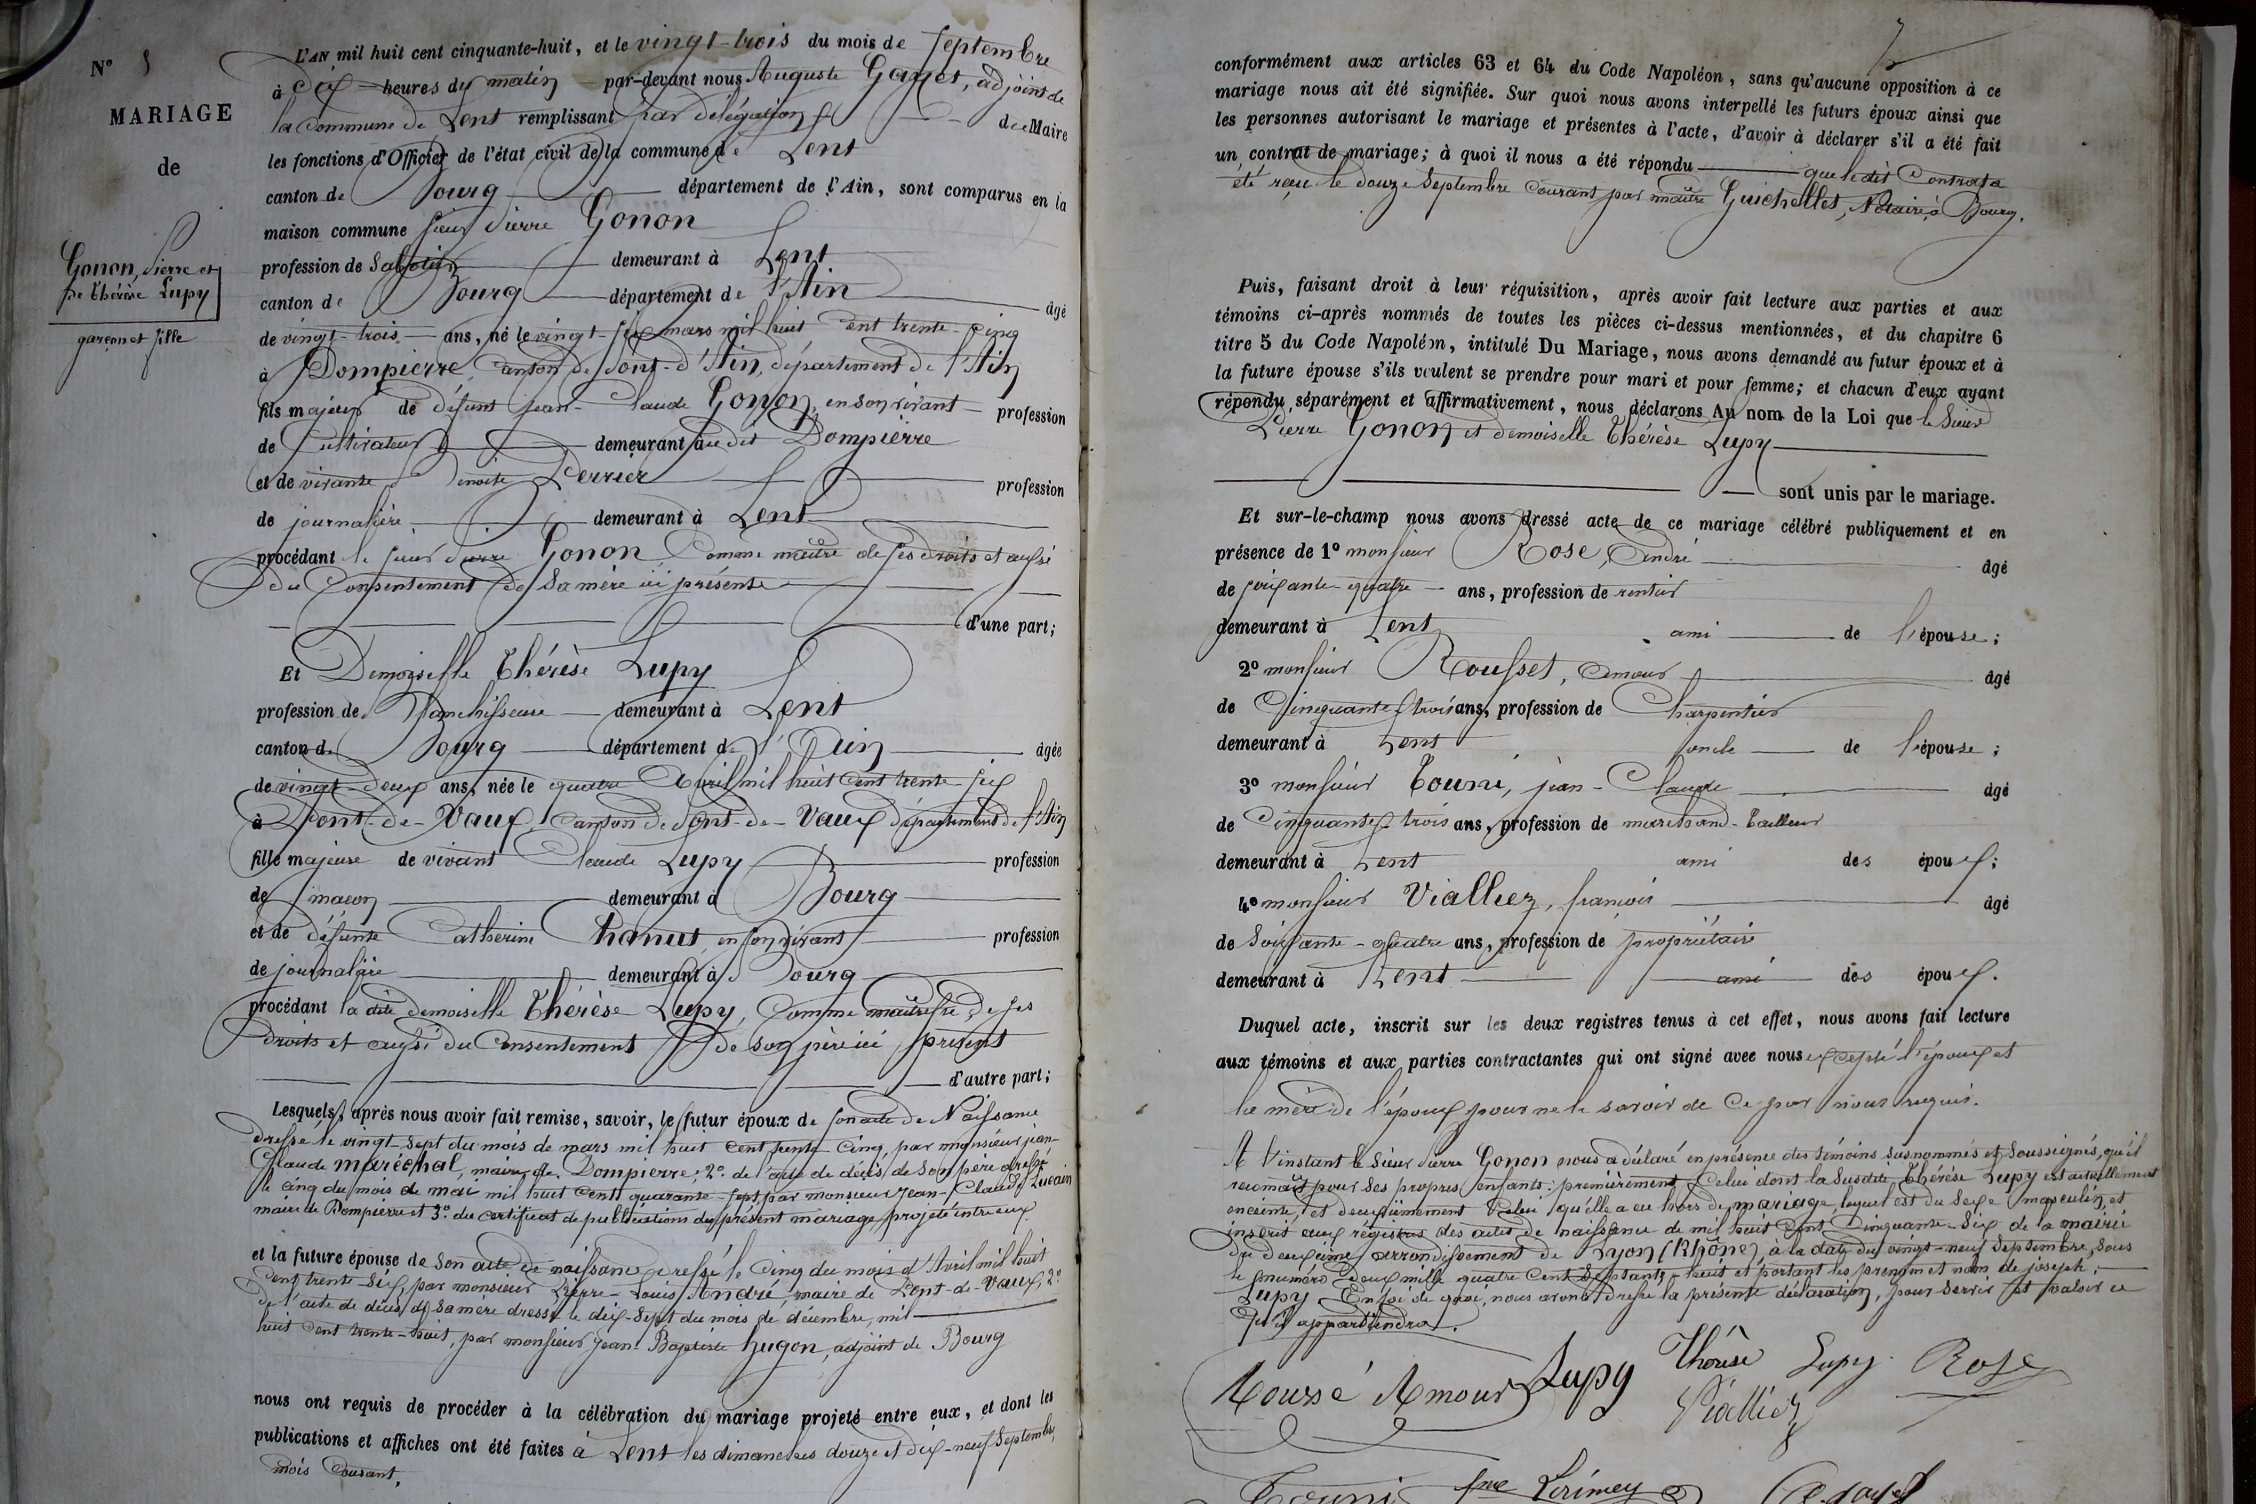 N° 8
MARIAGE
de
Gonon, Pierre et
De Thérèse Lupy
garçon et fille
L'AN mil huit cent cinquante-huit, et le vingt-trois du mois de septembre
à dix heures du matin par-devant nous Auguste Gayet, adjoint de
la commune de Lent remplissant par délégation de Maire
les fonctions d'Officier de l'état civil de la commune de Lent
canton de Bourg département de l'Ain, sont comparus en la
maison commune sieur Pierre Gonon
profession de Sabotier demeurant à Lent
canton de Bourg département de l'Ain âgé
de vingt-trois ans, né le vingt-six mars mil huit cent trente-cinq
à Dompierre, canton de Pont-d'Ain, département de l'Ain
fils majeur de défunt jean-Claude Gonon, en son vivant profession
de Cultivateur demeurant au dit Dompierre
et de vivante Benoite Perrier profession
de journalière demeurant à Lent
procédant le sieur Pierre Gonon Comme maître de ses droits et aussi
du Consentement de Sa mère ici présente
d'une part;
Et Demoiselle Thérèse Lupy
profession de Blanchisseuse demeurant à Lent
canton de Bourg département de l'Ain âgée
de vingt-deux ans, née le quatre Avril mil huit cent trente-six
à Pont-de-Vaux, Canton de Pont-de-Vaux département de l'Ain
fille majeure de vivant Claude Lupy profession
de maçon demeurant à Bourg
et de défunte Catherine Chanut en son vivant profession
de journalière demeurant à Bourg
procédant la dite demoiselle Thérèse Lupy, Comme maîtresse de ses
droits et aussi du Consentement de son père ici présent
d'autre part;
Lesquels, après nous avoir fait remise, savoir, le futur époux de son acte de Naissance
dressé le vingt-sept du mois de mars mil huit cent trente cinq, par monsieur jean-
Claude maréchal, maire de Dompierre; 2° de l'acte de décès de Son père dressé
le cinq du mois de mai mil huit cent quarante-sept par monsieur jean-Claude
maire de Dompierre et 3° du certificat de publications du présent mariage projeté entre eux
et la future épouse de Son acte de naissance dressé le Cinq du mois d'Avril mil huit
cent trente-Six, par monsieur Pierre-Louis André maire de Pont-de-Vaux, 2°
de l'acte de décès de Sa mère dressé le dix-Sept du mois de décembre, mil
huit cent trente-huit, par monsieur jean Baptiste hugon, adjoint de Bourg
nous ont requis de procéder à la célébration du mariage projeté entre eux, et dont les
publications et affiches ont été faites à Lent les dimanches douze et dix-neuf Septembre,
mois Courant,
conformément aux articles 63 et 64 du Code Napoléon, sans qu'aucune opposition à ce
mariage nous ait été signifiée. Sur quoi nous avons interpellé les futurs époux ainsi que
les personnes autorisant le mariage et présentes à l'acte, d'avoir à déclarer s'il a été fait
un contrat de mariage; à quoi il nous a été répondu que le dit Contrat a
été reçu le douze Septembre Courant par maître Guichellet, Notaire à Bourg.
Puis, faisant droit à leur réquisition, après avoir fait lecture aux parties et aux
témoins ci-après nommés de toutes les pièces ci-dessus mentionnées, et du chapitre 6
titre 5 du Code Napoléon, intitulé Du Mariage, nous avons demandé au futur époux et à
la future épouse s'ils veulent se prendre pour mari et pour femme; et chacun d'eux ayant
répondu séparément et affirmativement, nous déclarons Au nom de la Loi que le Sieur
Pierre Gonon et demoiselle Thérèse Lupy
sont unis par le mariage.
Et sur-le-champ nous avons dressé acte de ce mariage célébré publiquement et en
présence de 1° monsieur Rose, André âgé
de soixante-quatre ans, profession de rentier
demeurant à Lent ami de l'épouse;
2° monsieur Rousset, Amour âgé
de Cinquante-trois ans, profession de Charpentier
demeurant à Lent oncle de l'épouse;
3° monsieur Tourni, jean-Claude âgé
de Cinquante-trois ans, profession de marchand-Tailleur
demeurant à Lent ami des époux;
4° monsieur Vialliez, françois âgé
de Soixante-quatre ans, profession de propriétaire
demeurant à Lent ami des époux.
Duquel acte, inscrit sur les deux registres tenus à cet effet, nous avons fait lecture
aux témoins et aux parties contractantes qui ont signé avec nous excepté l'époux et
la mère de l'époux pour ne le savoir de Ce par nous requis.
A l'instant le Sieur Pierre Gonon nous a déclaré en présence des témoins susnommés et Soussignés, qu'il
reconnait pour Ses propres enfants: premièrement, Celui dont la Susdite Thérèse Lupy est actuellement
enceinte, et deuxièmement Celui qu'elle a eu hors de mariage, lequel est du Sexe masculin et
inscrit aux régistres des actes de naissance de mil huit Cent Cinquante-Six de la mairie
du deuxième arrondissement de Lyon (Rhône) à la date du vingt-neuf Septembre, Sous
le numéro deux mille quatre Cent Septante-huit et portant les prenom et nom de joseph
Lupy. En foi de quoi, nous avons dressé la présente déclaration, pour servir et valoir ce
qu'il appartiendra.
Rousé Amour Lupy Thérèse Lupy Rose
Vialliez
Tourni